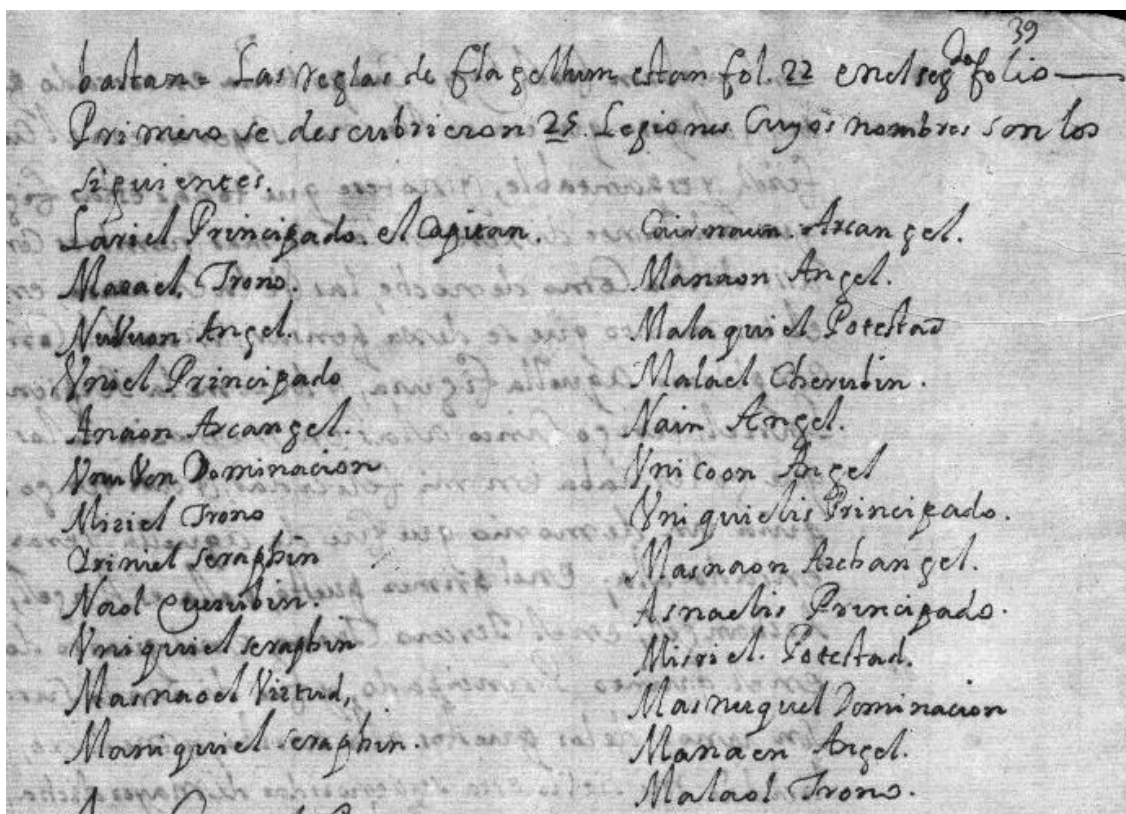 39
bastan = Las reglas de flagellum estan fol. 22 en el seg.do folio
Primero se descubrieron 25. Legiones Cuyos nombres son los
siguientes.
Lariel Principado. el Capitan.
Masael. Trono.
Angel.
Vriel Principado
Anaon Arcangel.
Dominacion
Miziel Trono
Triniel seraphin
Naol Querubin.
Vniquiel seraphin
Masnaoel Virtud,
Maniquiel seraphin.
Arcangel.
Manaon Angel.
Malaquiel Potestad
Malael Cherubin.
Nain Angel.
Vnicoon Angel
Vniquielis Principado.
Masnaon Archangel.
Asnaelis Principado.
Misriel. Potestad.
Masnuquel Dominacion
Manaen Angel.
Malaol Trono.